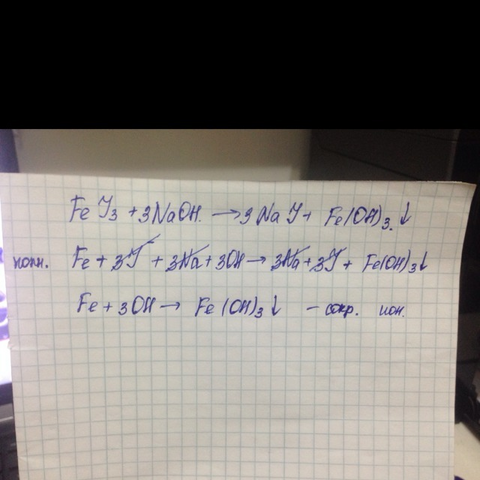 FeJ₃ + 3NaOH. → 3NaJ + Fe(OH)₃↓
полн. Fe + 3J + 3Na + 3OH → 3Na + 3J + Fe(OH)₃↓
Fe + 3OH → Fe(OH)₃↓ – сокр. ион.